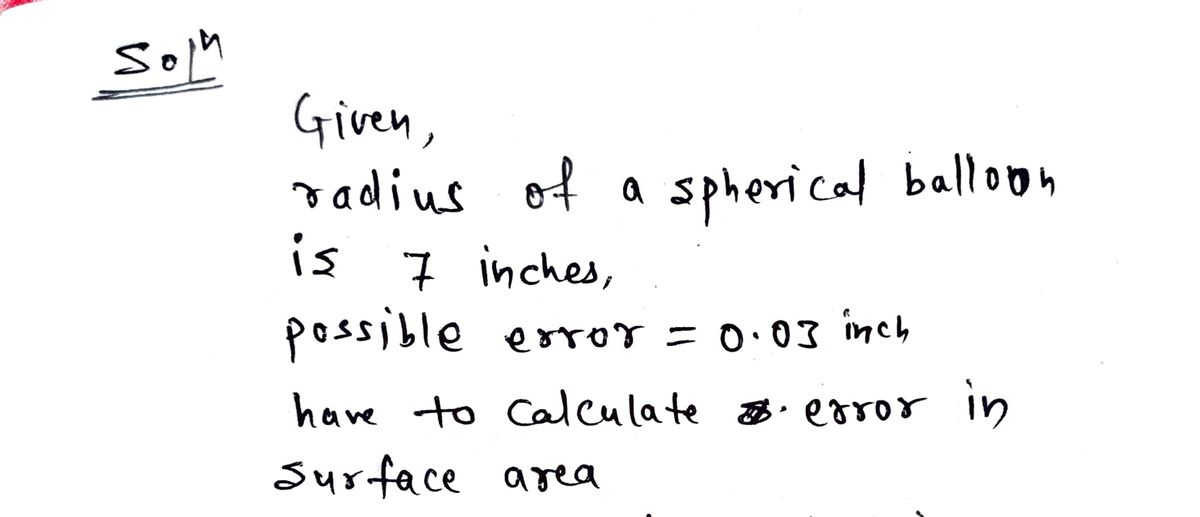 Solⁿ
Given,
radius of a spherical balloon
is 7 inches,
possible error = 0.03 inch
have to calculate error in
surface area